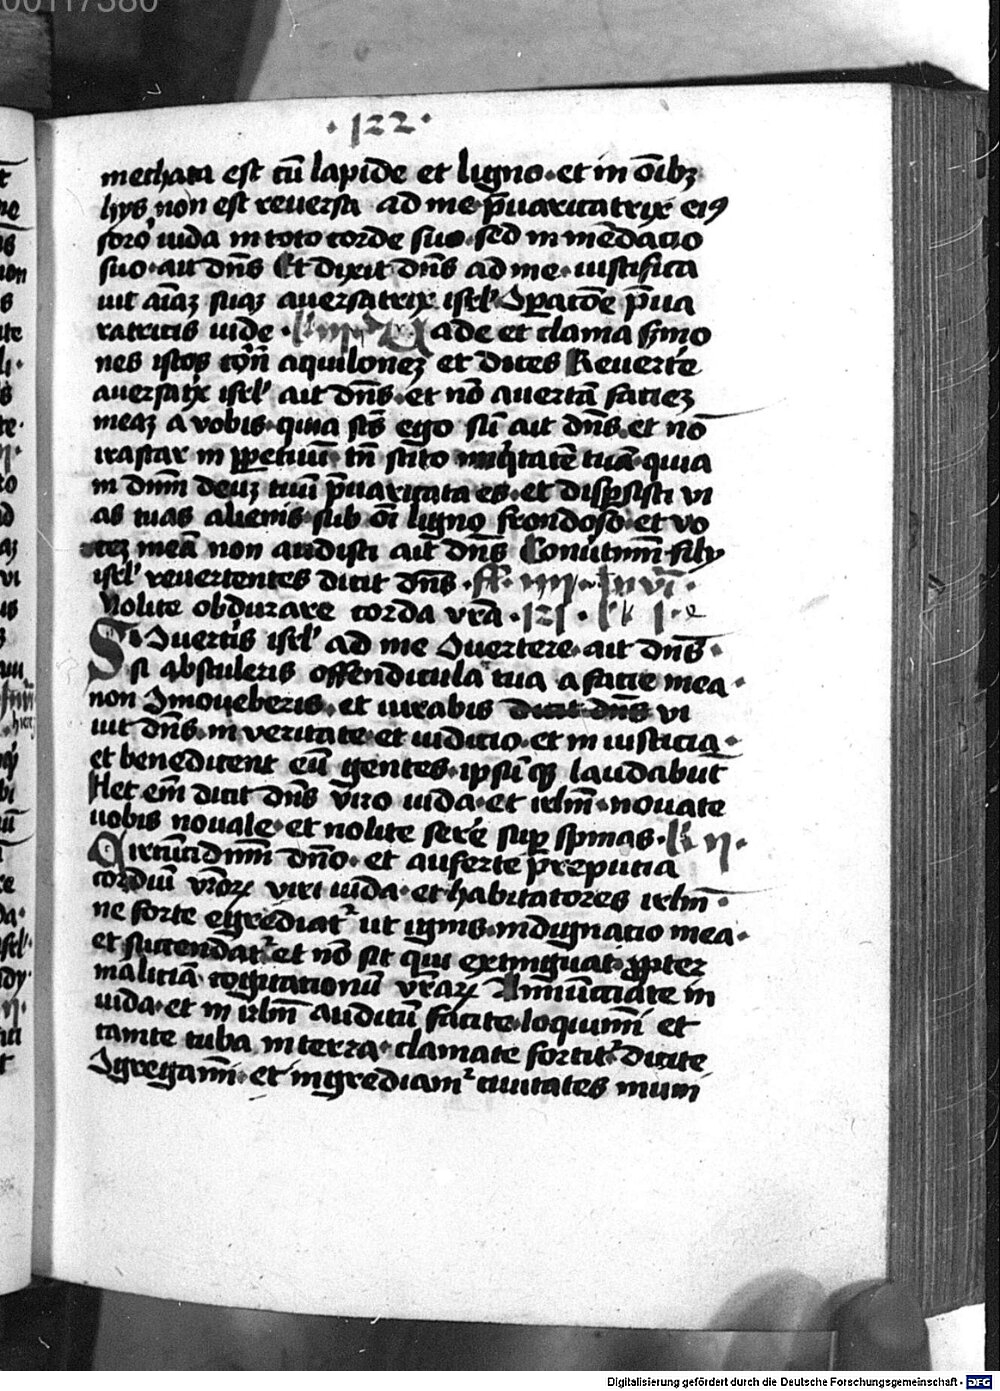 00117380
· 122 ·
mechata est cũ lapide et ligno · et in oĩbꝫ
hys non est reuersa ad me p̃uaricatrix eiꝰ
soror iuda in toto corde suo · sed in mendacio
suo · ait dñs Et dixit dñs ad me · iustifica
uit aĩaꝫ suaꝫ aversatrix isrl' Ꝯparatõe p̃ua
ricatricis iude · l' iii · Vade et clama ẜmo
nes istos ꝯtrͣ aquiloneꝫ et dices Reuerte
aversatͥx isrl' ait dñs · et nõ avertã facieꝫ
meaꝫ a vobis · quia sc̃s ego sũ ait dñs · et nõ
irascar in ꝑpetuũ tñ scito iniq̇tatẽ tuã · quia
in dñm deuꝫ tuũ p̃uaricata es · et disꝑsisti vi
as tuas alienis · sub õi ligno frondoso · et vo
ceꝫ meã non audisti ait dñs Conũtimĩ · filij
isrl' reuertentes dicit dñs ·
Nolite obdurare corda vrã · 121 · l' k I · e
Si Ꝯuerteris isrl' ad me Ꝯuertere · ait dñs ·
si abstuleris offendicula tua a facie mea ·
non Ꝯmoueberis · et iurabis dicit dñs vi
uit dñs · in veritate · et iudicio · et in iusticia ·
et benedicent eũ gentes · ipsũ qꝫ laudabũt
Hec em̃ dicit dñs viro iuda · et irlm̃ · novate
uobis novale · et nolite serẽ suꝑ spinas · l' ii ·
Circũcidimĩ dño · et auferte preputia
cordiũ vr̃oꝝ viri iuda · et habitatores irlm̃ ·
ne forte egrediat᷑ ut ignis · indignatio mea ·
et succendat᷑ · et nõ sit qui extinguat · ꝓpter
maliciã cogitationũ vr̃aꝝ Annũcciate in
iuda · et in irlm̃ auditũ facite · loquimĩ et
canite tuba in terra · clamate fortit᷑ dicite
Ꝯgregamĩ · et ingrediam᷑ ciuitates muni
Digitalisierung gefördert durch die Deutsche Forschungsgemeinschaft - DFG